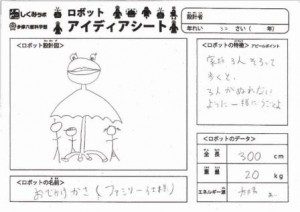 しくみらぼ
多摩六都科学館
ロボット
アイディアシート
設計者
年れい 32 さい( 年)
<ロボット設計図>
<ロボットの特徴> アピールポイント
家族3人そろって
歩くと、
3人がぬれない
ように一緒にうごくよ
<ロボットのデータ>
全長 300 cm
重量 20 kg
エネルギー源
<ロボットの名前>
おでかけかさ(ファミリー仕様)